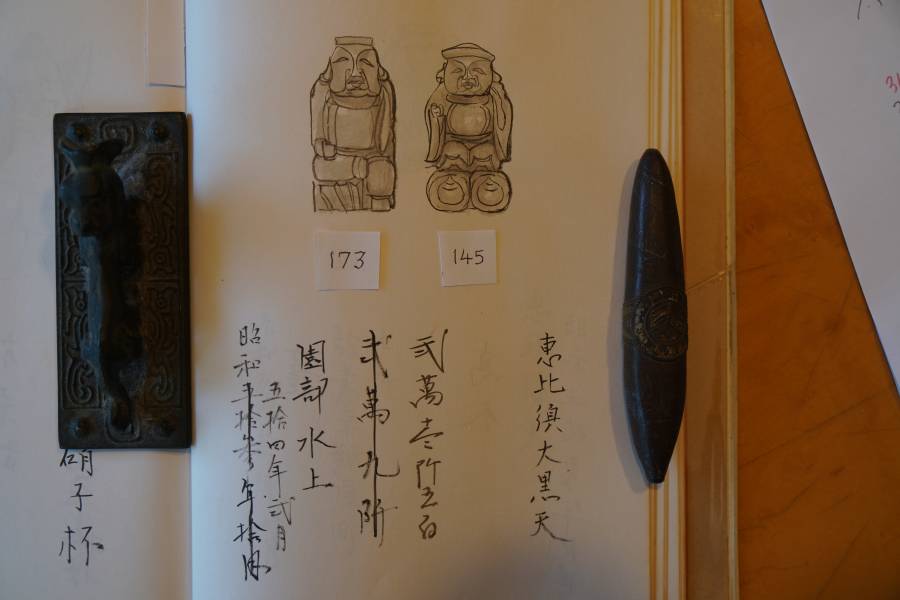 173
145
恵比須大黒天
弍萬壱阡五百
弍萬九阡
園部水上
五拾四年弍月
昭和五拾参年拾月
硝子杯